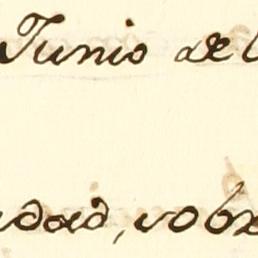 Junio de
dad, sobre